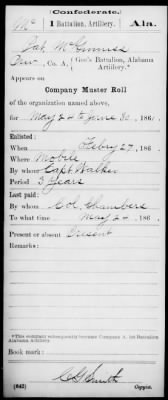 Confederate.
Mc | 1 Battalion, Artillery. | Ala.
Jas. McGinniss
Priv., Co. A, (Gee's Battalion, Alabama
Artillery.*
Appears on
Company Muster Roll
of the organization named above,
for May 24 to June 30, 186 .
Enlisted:
When Febry 27, 186 .
Where Mobile
By whom Capt Walker
Period 3 Years
Last paid:
By whom Col. Chambers
To what time May 24, 186 .
Present or absent Present
Remarks:
*This company subsequently became Company A, 1st Battalion
Alabama Artillery.
Book mark:
(642)
Copyist.